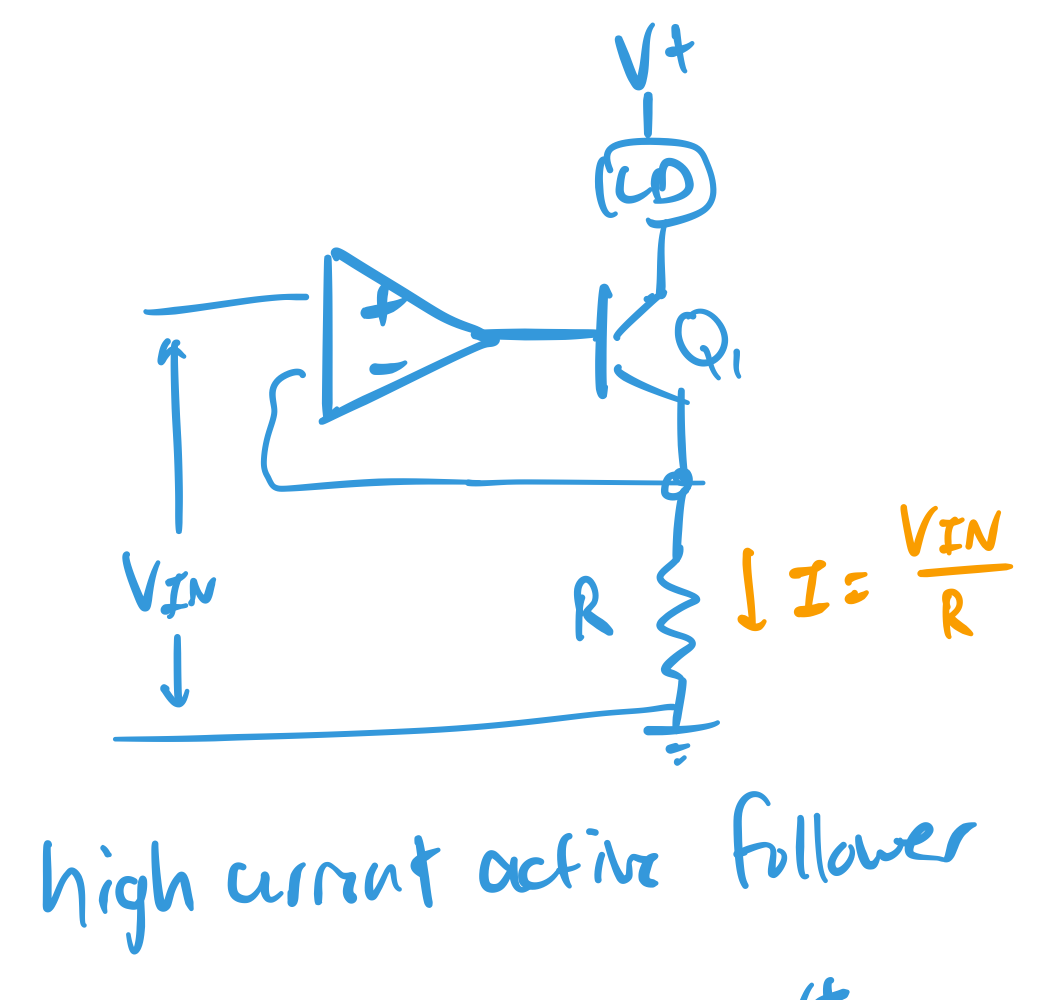 V+
LD
+
−
Q1
VIN
R
I = VIN/R
high current active follower